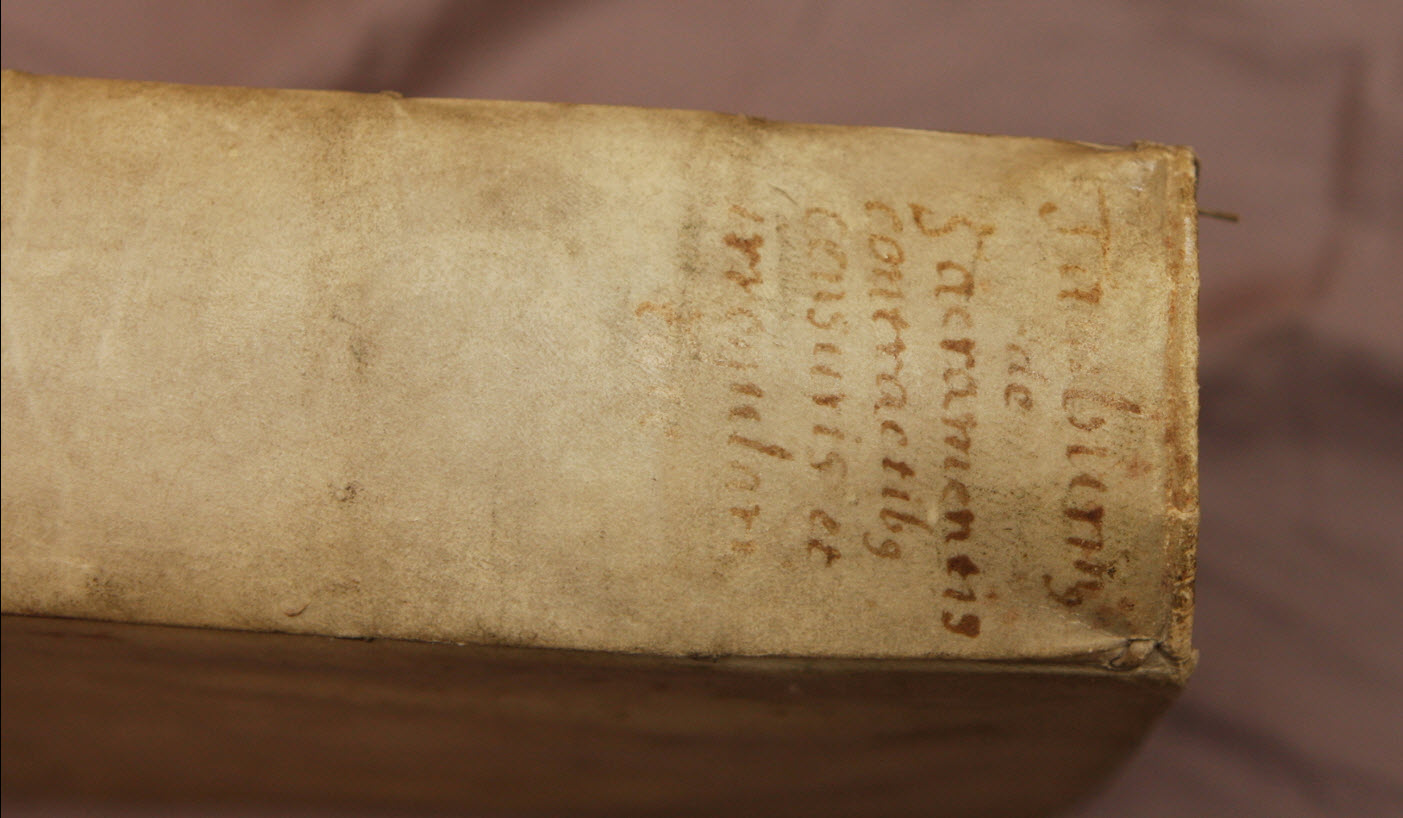 de
Sacramentis
contractibꝯ
censuris et
irregulari